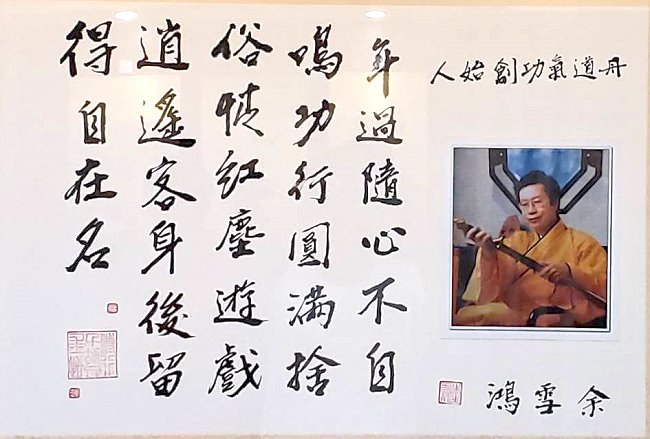 丹道氣功創始人
余雪鴻
年過隨心不自
鳴功行圓滿捨
俗情紅塵遊戲
逍遙客身後留
得自在名